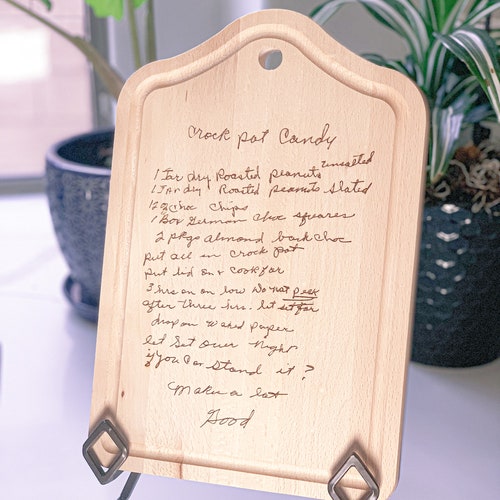 Crock pot Candy
1 Jar dry Roasted peanuts unsalted
1 Jar dry Roasted peanuts Slated
12 oz Choc Chips
1 Box German choc squares
2 pkgs almond bark choc
put all in crock pot
put lid on & cook for
3 hrs on on low Do not peek
after three hrs. let set for
drop on waxed paper
let Set over night
if you can stand it?
Make a lot
Good